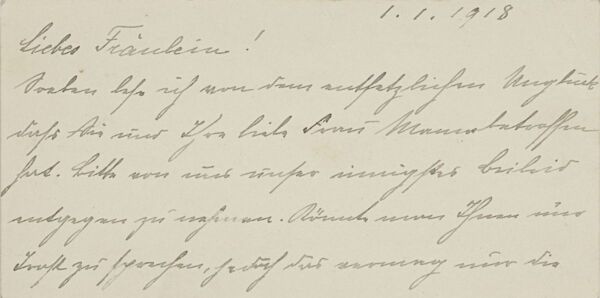 1.1.1918
Liebes Fräulein!
Soeben lese ich von dem entsetzlichen Unglück
daß Sie und Ihre liebe Frau Mama betroffen
hat. Bitte von uns unser innigstes Beileid
entgegen zu nehmen. Könnte man Ihnen nur
Trost zu sprechen, jedoch das vermag nur die